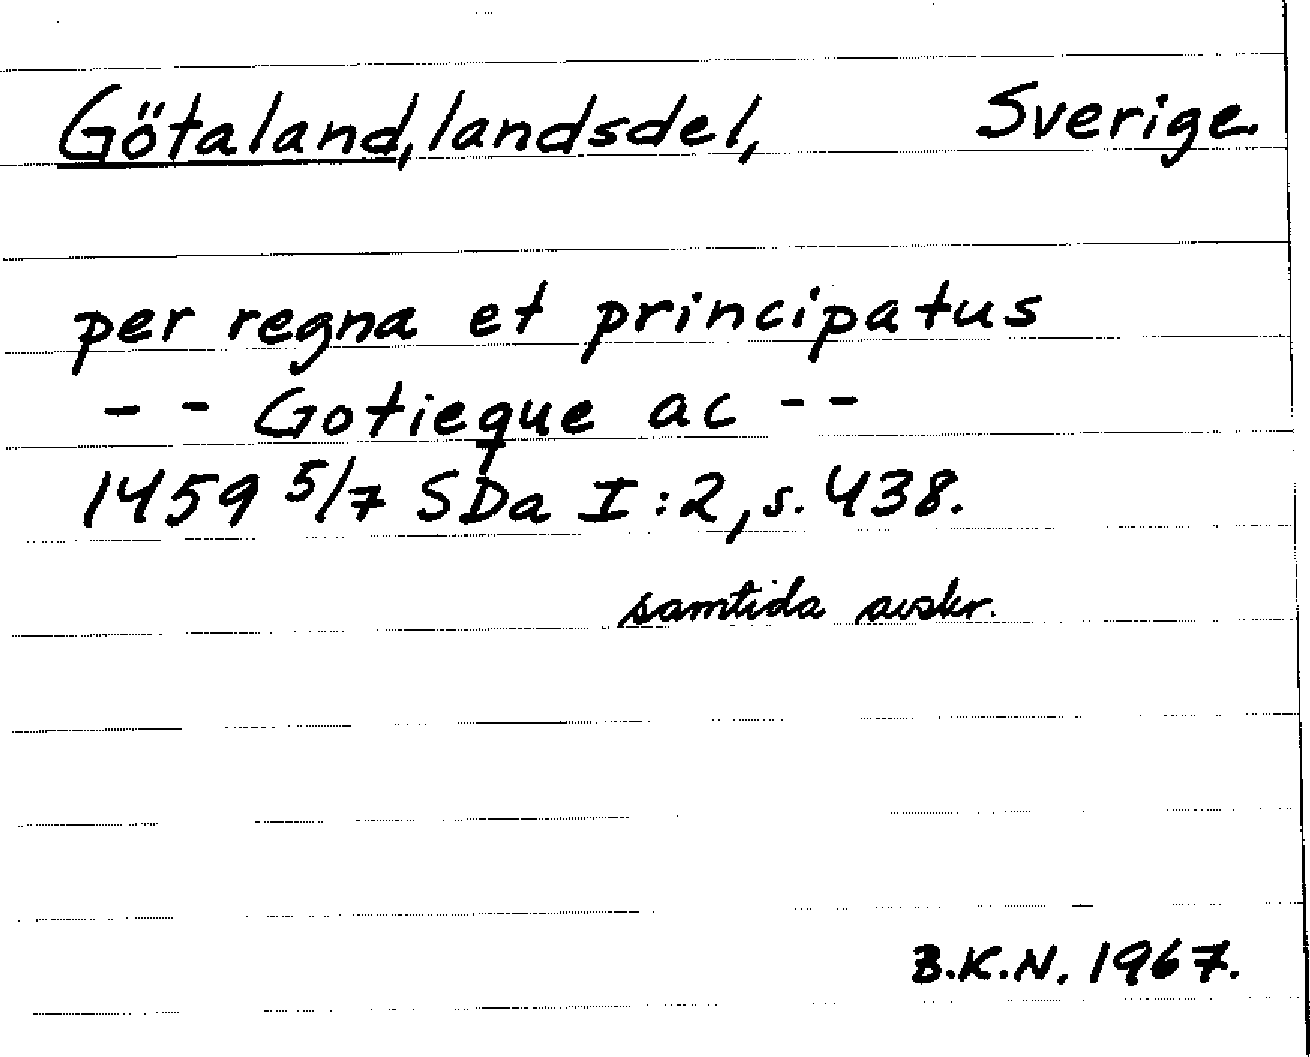 Götaland, landsdel, Sverige.
per regna et principatus
- - Gotieque ac - -
1459 5/7 SDa I:2, s. 438.
samtida avskr.
B.K.N. 1967.